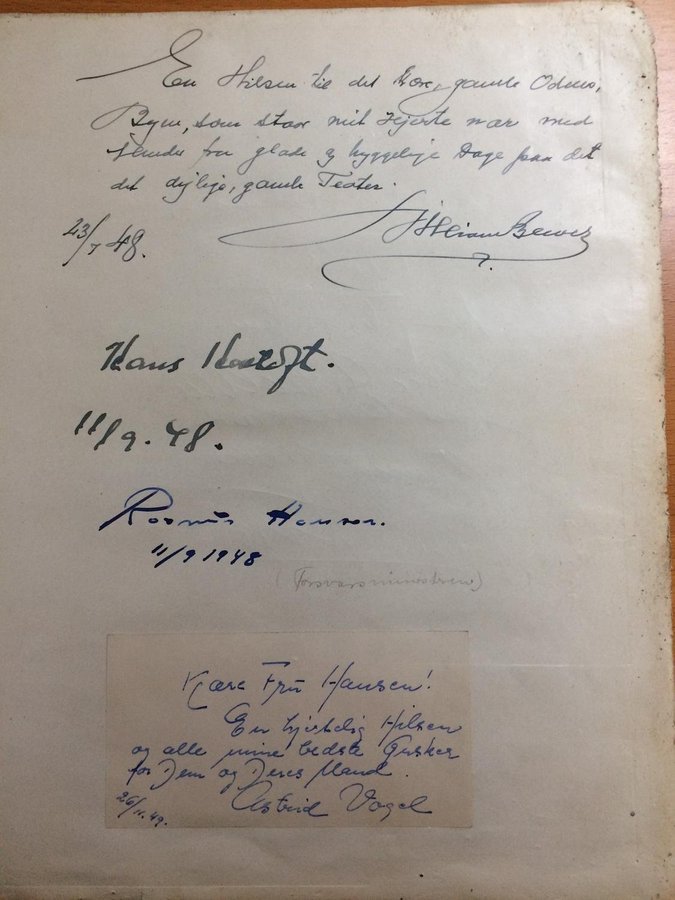 En Hilsen til det kære, gamle Odense,
Byen, som staar mit Hjerte nær med
Minder fra glade og hyggelige Dage paa det
det dejlige, gamle Teater.
23/7 48.
Hans
11/9. 48.
Rasmus Hansen.
11/9 1948
(Forsvarsministeren)
Kære Fru Hansen!
En hjertelig Hilsen
og alle mine bedste Ønsker
for Dem og Deres Mand.
Astrid Vogel
26/11.49.